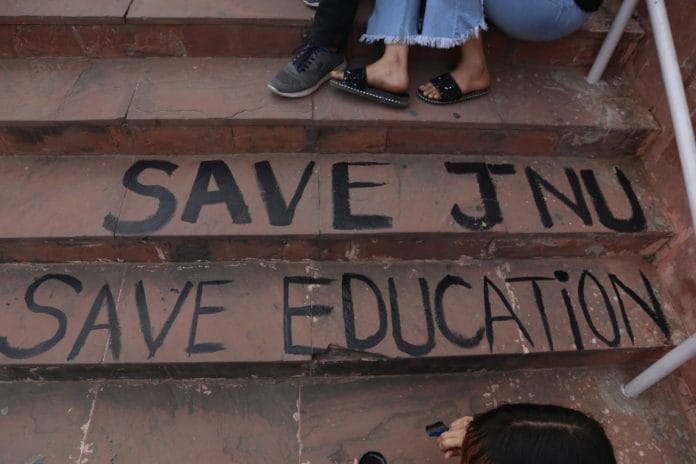 SAVE JNU
SAVE EDUCATiON